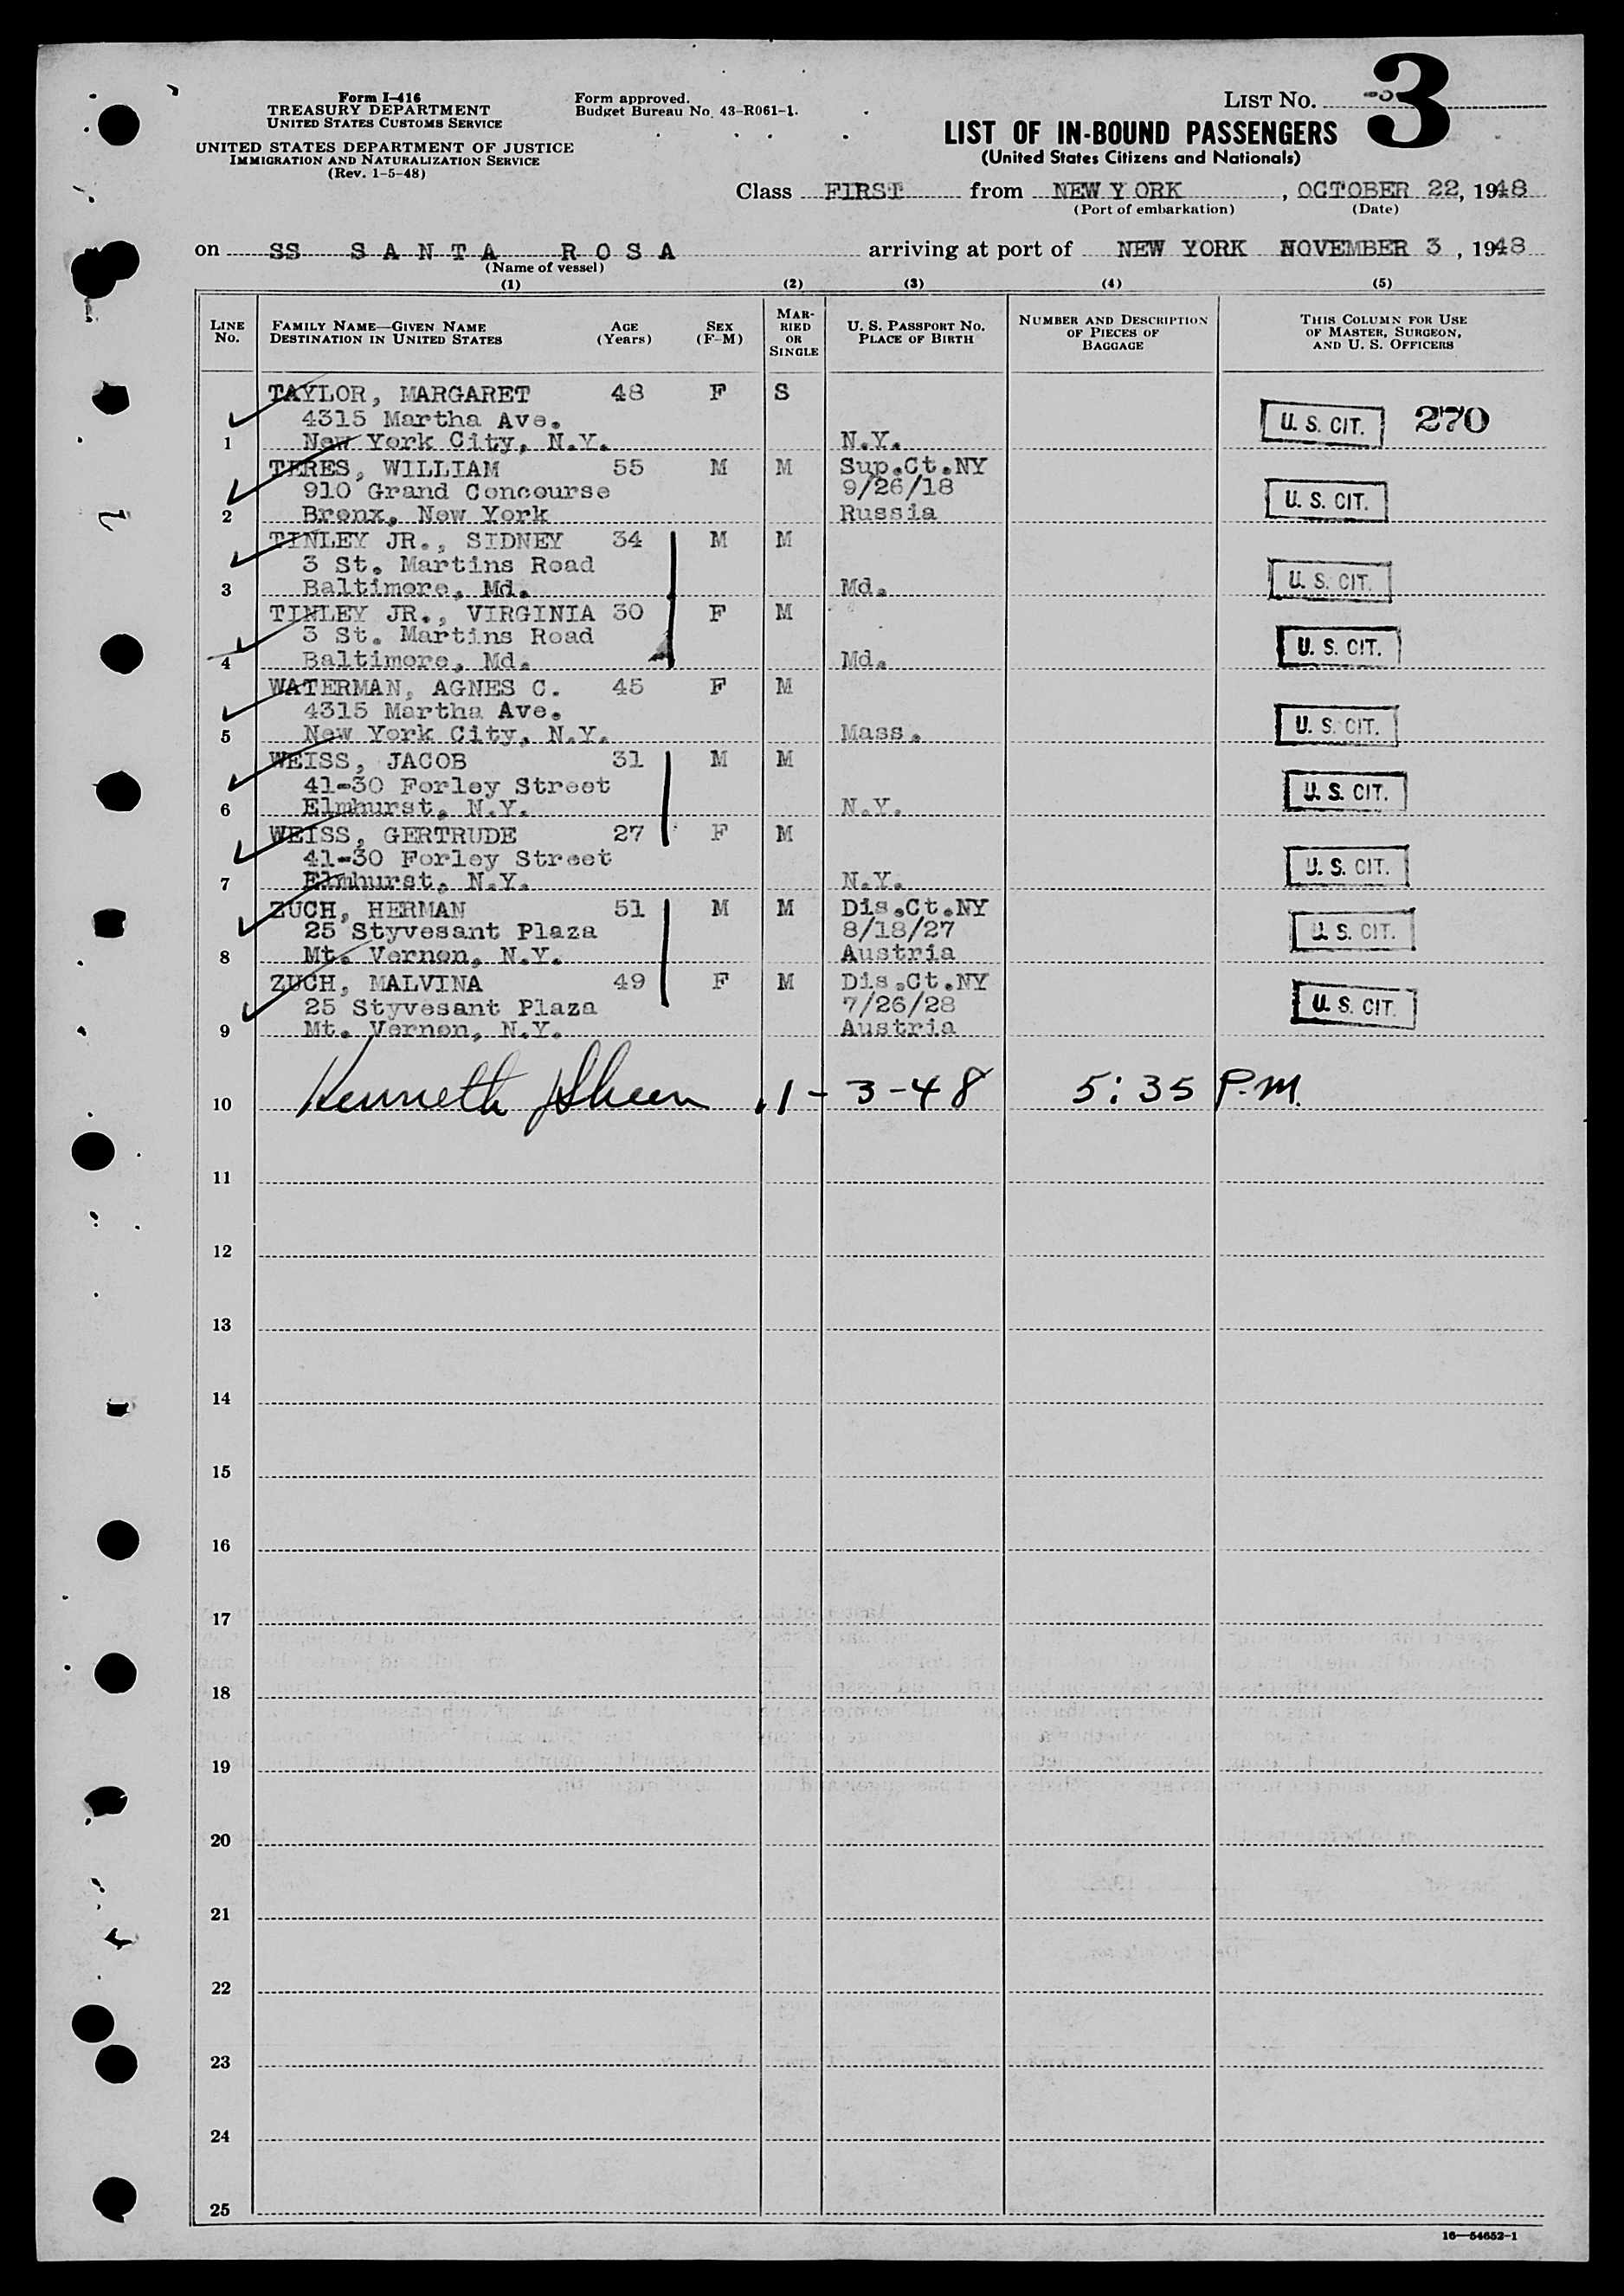 Form I-416
TREASURY DEPARTMENT
UNITED STATES CUSTOMS SERVICE
UNITED STATES DEPARTMENT OF JUSTICE
IMMIGRATION AND NATURALIZATION SERVICE
(Rev. 1-5-48)
Form approved.
Budget Bureau No. 43-R061-1.
LIST NO. -3- 3
LIST OF IN-BOUND PASSENGERS
(United States Citizens and Nationals)
Class FIRST from NEW YORK, OCTOBER 22, 1948
(Port of embarkation) (Date)
on SS SANTA ROSA arriving at port of NEW YORK NOVEMBER 3, 1948
(Name of vessel)
(1) (2) (3) (4) (5)
LINE No. FAMILY NAME—GIVEN NAME DESTINATION IN UNITED STATES AGE (Years) SEX (F-M) MARRIED OR SINGLE U. S. PASSPORT NO. PLACE OF BIRTH NUMBER AND DESCRIPTION OF PIECES OF BAGGAGE THIS COLUMN FOR USE OF MASTER, SURGEON, AND U. S. OFFICERS
TAYLOR, MARGARET 48 F S
4315 Martha Ave. U. S. CIT. 270
1 New York City, N.Y. N.Y.
TERES, WILLIAM 55 M M Sup.Ct.NY
910 Grand Concourse 9/26/18 U. S. CIT.
2 Bronx, New York Russia
TINLEY JR., SIDNEY 34 M M
3 St. Martins Road U. S. CIT.
3 Baltimore, Md. Md.
TINLEY JR., VIRGINIA 30 F M
3 St. Martins Road U. S. CIT.
4 Baltimore, Md. Md.
WATERMAN, AGNES C. 45 F M
4315 Martha Ave. U. S. CIT.
5 New York City, N.Y. Mass.
WEISS, JACOB 31 M M
41-30 Forley Street U. S. CIT.
6 Elmhurst, N.Y. N.Y.
WEISS, GERTRUDE 27 F M
41-30 Forley Street U. S. CIT.
7 Elmhurst, N.Y. N.Y.
ZUCH, HERMAN 51 M M Dis.Ct.NY
25 Styvesant Plaza 8/18/27 U. S. CIT.
8 Mt. Vernon, N.Y. Austria
ZUCH, MALVINA 49 F M Dis.Ct.NY
25 Styvesant Plaza 7/26/28 U. S. CIT.
9 Mt. Vernon, N.Y. Austria
10 Kenneth 11-3-48 5:35 P.M.
11
12
13
14
15
16
17
18
19
20
21
22
23
24
25
16—54652-1